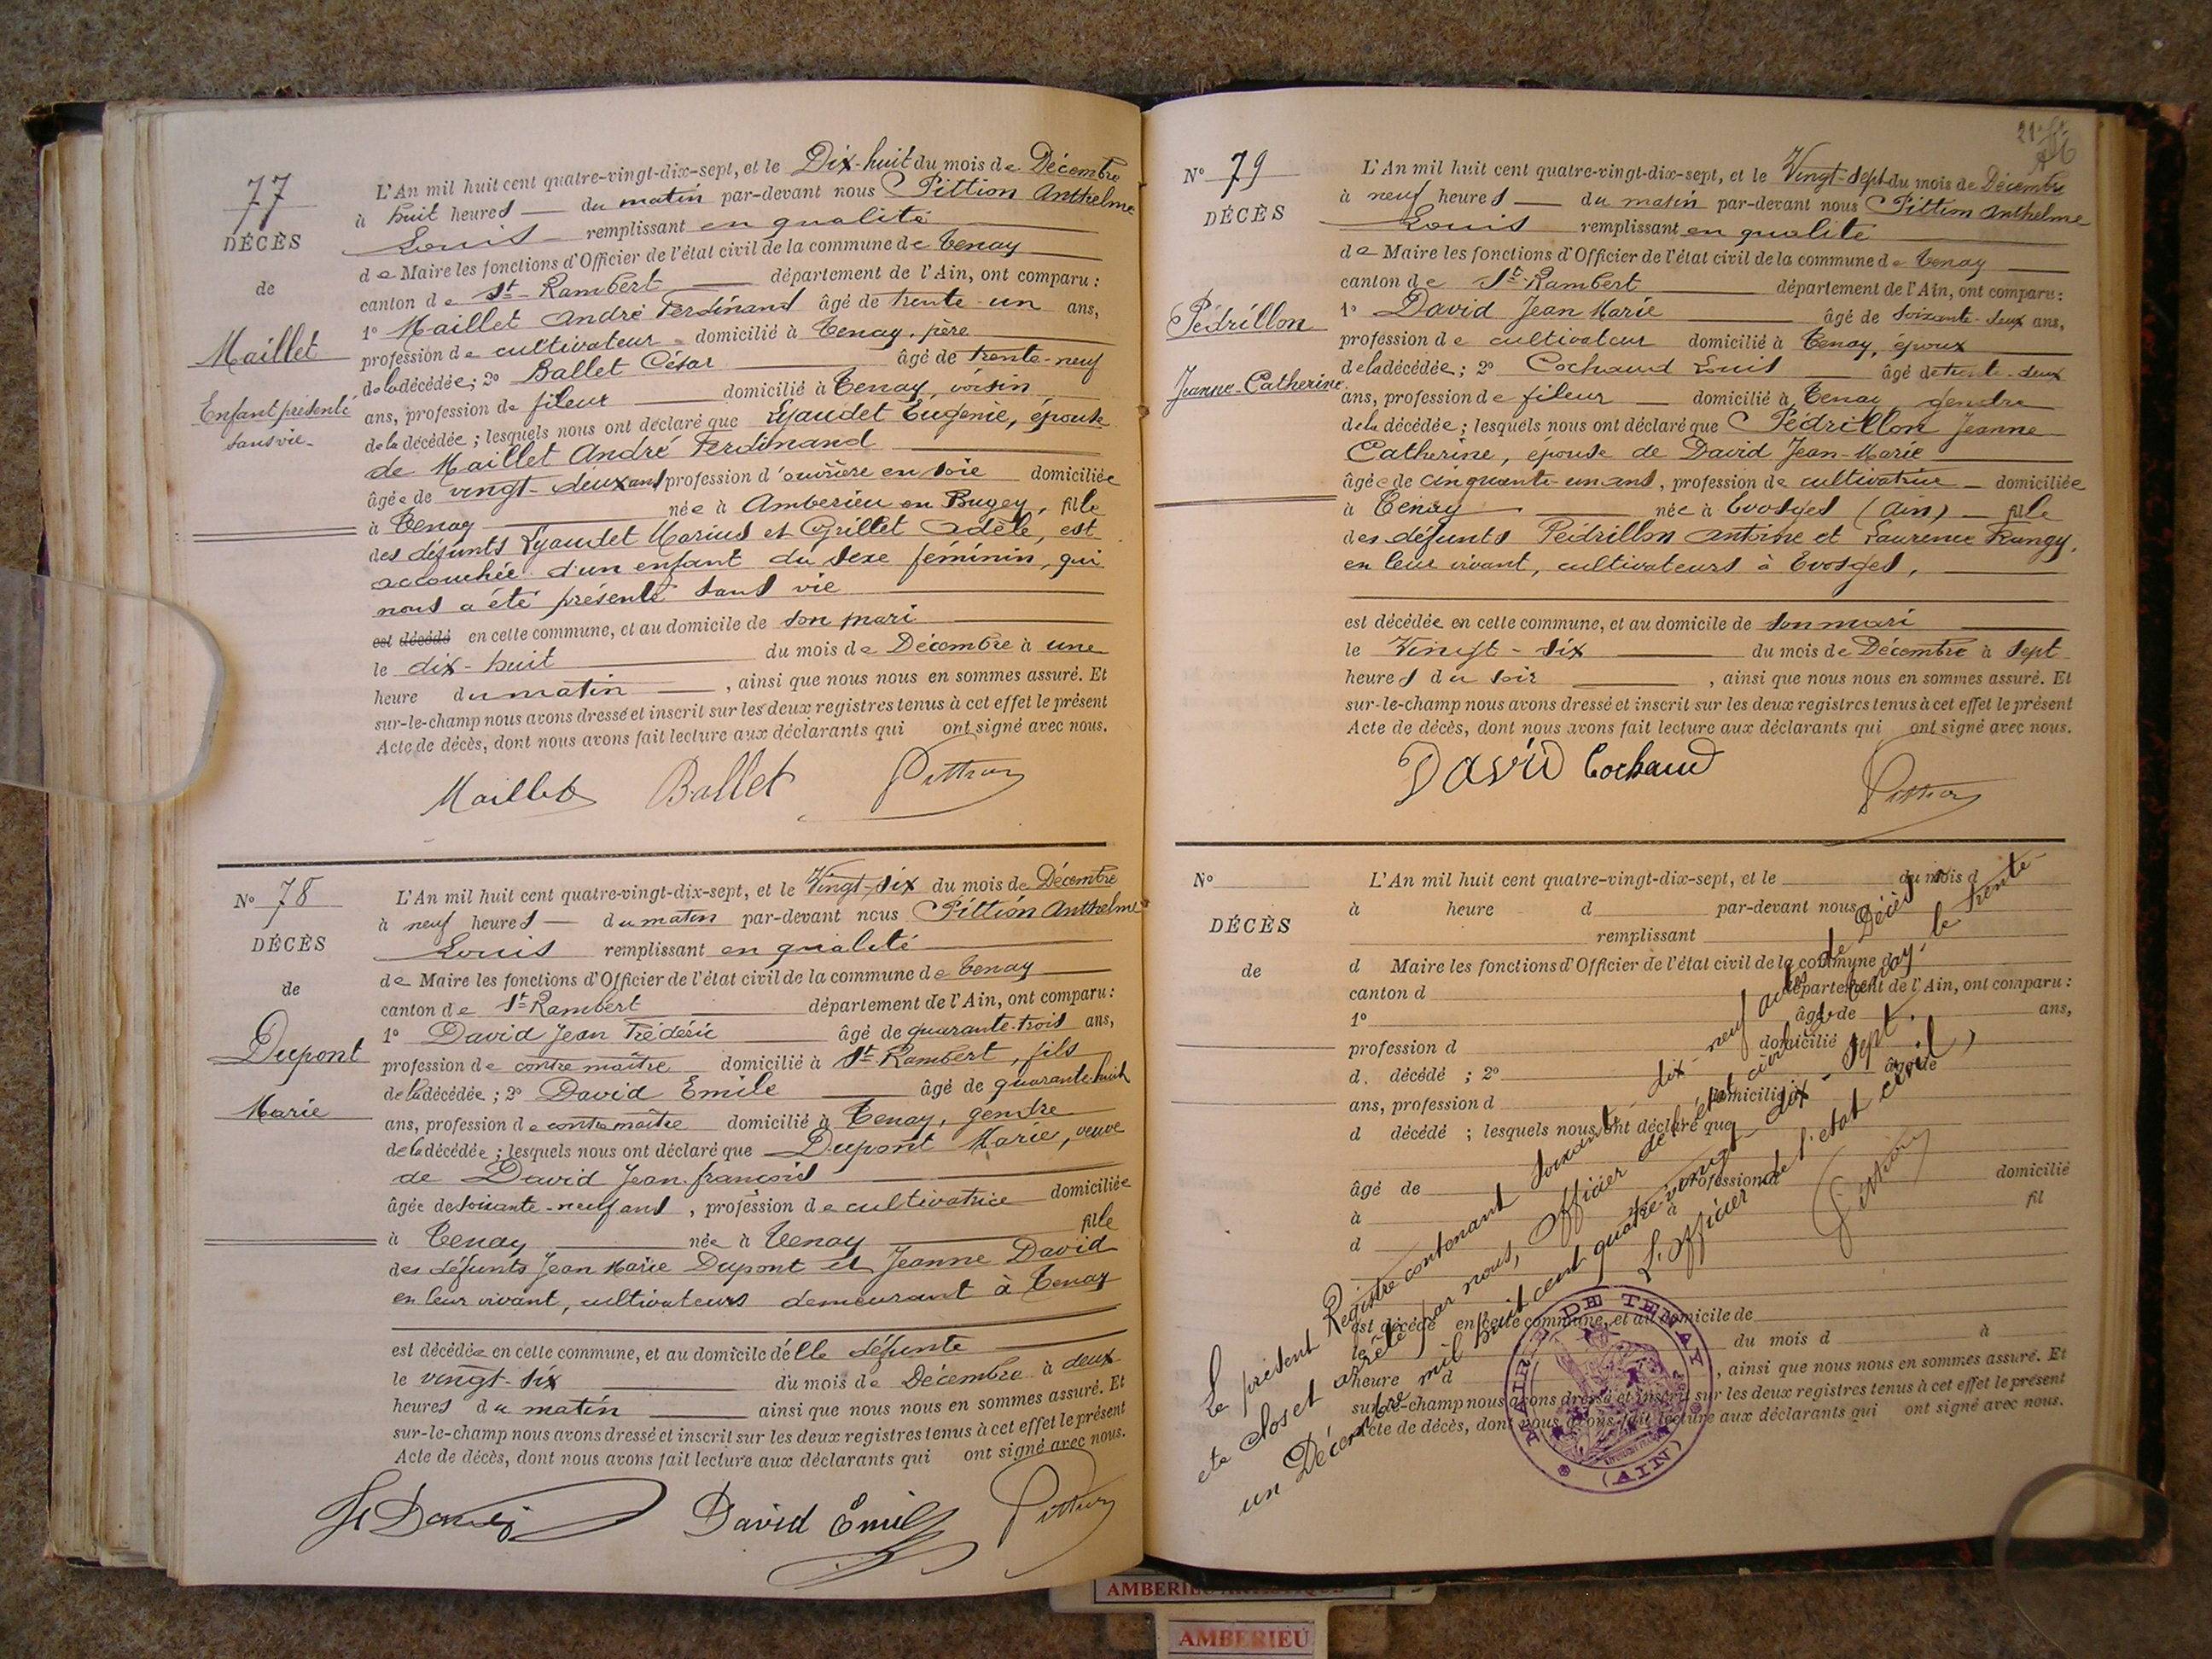 77
DÉCÈS
de
Maillet
Enfant présenté
sans vie
L'An mil huit cent quatre-vingt-dix-sept, et le Dix-huit du mois de Décembre
à huit heures du matin par-devant nous Pittion Anthelme
Louis remplissant en qualité
de Maire les fonctions d'Officier de l'état civil de la commune de Tenay
canton de St-Rambert département de l'Ain, ont comparu :
1° Maillet André Ferdinand âgé de trente-un ans,
profession de cultivateur domicilié à Tenay, père
de la décédée ; 2° Ballet César âgé de trente-neuf
ans, profession de fileur domicilié à Tenay, voisin
de la décédée ; lesquels nous ont déclaré que Lyaudet Eugénie, épouse
de Maillet André Ferdinand
âgée de vingt-deux ans profession d'ouvrière en soie domiciliée
à Tenay née à Amberieu en Bugey, fille
des défunts Lyaudet Marius et Grillet Adèle, est
accouchée d'un enfant du sexe féminin, qui
nous a été présenté sans vie
est décédé en cette commune, et au domicile de son mari
le dix-huit du mois de Décembre à une
heure du matin, ainsi que nous nous en sommes assuré. Et
sur-le-champ nous avons dressé et inscrit sur les deux registres tenus à cet effet le présent
Acte de décès, dont nous avons fait lecture aux déclarants qui ont signé avec nous.
Maillet Ballet Pittion
N° 78
DÉCÈS
de
Dupont
Marie
L'An mil huit cent quatre-vingt-dix-sept, et le Vingt-six du mois de Décembre
à neuf heures du matin par-devant nous Pittion Anthelme
Louis remplissant en qualité
de Maire les fonctions d'Officier de l'état civil de la commune de Tenay
canton de St-Rambert département de l'Ain, ont comparu :
1° David Jean Frédéric âgé de quarante-trois ans,
profession de contre maître domicilié à St-Rambert, fils
de la décédée ; 2° David Emile âgé de quarante-huit
ans, profession de contre maître domicilié à Tenay, gendre
de la décédée ; lesquels nous ont déclaré que Dupont Marie, veuve
de David Jean-françois
âgée de soixante-neuf ans, profession de cultivatrice domiciliée
à Tenay née à Tenay fille
des défunts Jean Marie Dupont et Jeanne David
en leur vivant, cultivateurs demeurant à Tenay
est décédée en cette commune, et au domicile d'elle défunte
le vingt-six du mois de Décembre à deux
heures du matin ainsi que nous nous en sommes assuré. Et
sur-le-champ nous avons dressé et inscrit sur les deux registres tenus à cet effet le présent
Acte de décès, dont nous avons fait lecture aux déclarants qui ont signé avec nous.
David Emile Pittion
N° 79
DÉCÈS
Pédrillon
Jeanne-Catherine
L'An mil huit cent quatre-vingt-dix-sept, et le Vingt-sept du mois de Décembre
à neuf heures du matin par-devant nous Pittion Anthelme
Louis remplissant en qualité
de Maire les fonctions d'Officier de l'état civil de la commune de Tenay
canton de St-Rambert département de l'Ain, ont comparu :
1° David Jean Marie âgé de soixante-deux ans,
profession de cultivateur domicilié à Tenay, époux
de la décédée ; 2° Cochaud Louis âgé de trente-deux
ans, profession de fileur domicilié à Tenay gendre
de la décédée ; lesquels nous ont déclaré que Pédrillon Jeanne
Catherine, épouse de David Jean-Marie
âgée de cinquante-un ans, profession de cultivatrice domiciliée
à Tenay née à Evosges (Ain) fille
des défunts Pédrillon Antoine et Laurence Rangy,
en leur vivant, cultivateurs à Evosges,
est décédée en cette commune, et au domicile de son mari
le Vingt-six du mois de Décembre à sept
heures du soir, ainsi que nous nous en sommes assuré. Et
sur-le-champ nous avons dressé et inscrit sur les deux registres tenus à cet effet le présent
Acte de décès, dont nous avons fait lecture aux déclarants qui ont signé avec nous.
DAVID Cochaud Pittion
N°
DÉCÈS
de
L'An mil huit cent quatre-vingt-dix-sept, et le du mois d
à heure d par-devant nous
remplissant
d Maire les fonctions d'Officier de l'état civil de la commune d
canton d département de l'Ain, ont comparu :
1° âgé de ans,
profession d domicilié
d décédé ; 2° âgé de
ans, profession d domicilié
d décédé ; lesquels nous ont déclaré que
âgé de profession d domicilié
à à fil
d
est décédé en cette commune, et au domicile de
le du mois d à
heure d, ainsi que nous nous en sommes assuré. Et
sur-le-champ nous avons dressé et inscrit sur les deux registres tenus à cet effet le présent
Acte de décès, dont nous avons fait lecture aux déclarants qui ont signé avec nous.
Le présent Registre contenant soixante-dix-neuf actes de Décès a
été clos et arrêté par nous, officier de l'état civil de Tenay, le trente-
un Décembre mil huit cent quatre-vingt-dix-sept.
L'officier de l'état civil,
Pittion
MAIRIE DE TENAY
(AIN)
AMBERIEU
AMBERIEU